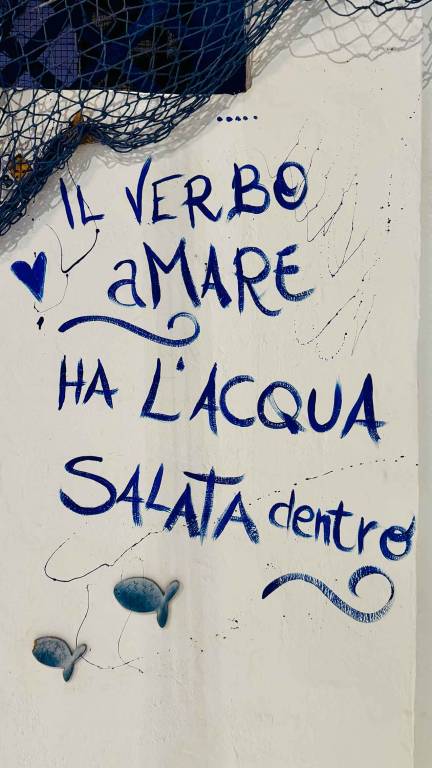 .....
IL VERBO
aMARE
HA L'ACQUA
SALATA dentro